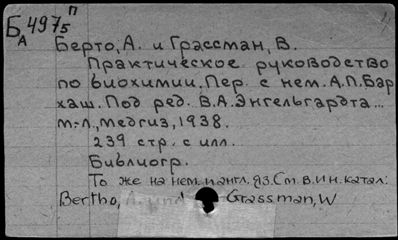 Б 4975 П
А
Берто, А. и Грассман, В.
Практическое руководство
по биохимии. Пер. с нем. А.П. Бар
хаш. Под ред. В.А. Энгельгардта...
М.-Л., Медгиз, 1938.
239 стр. с илл.
Библиогр.
То же на нем. яз. См. в ин. катал:
Bertho, und Grassman, W